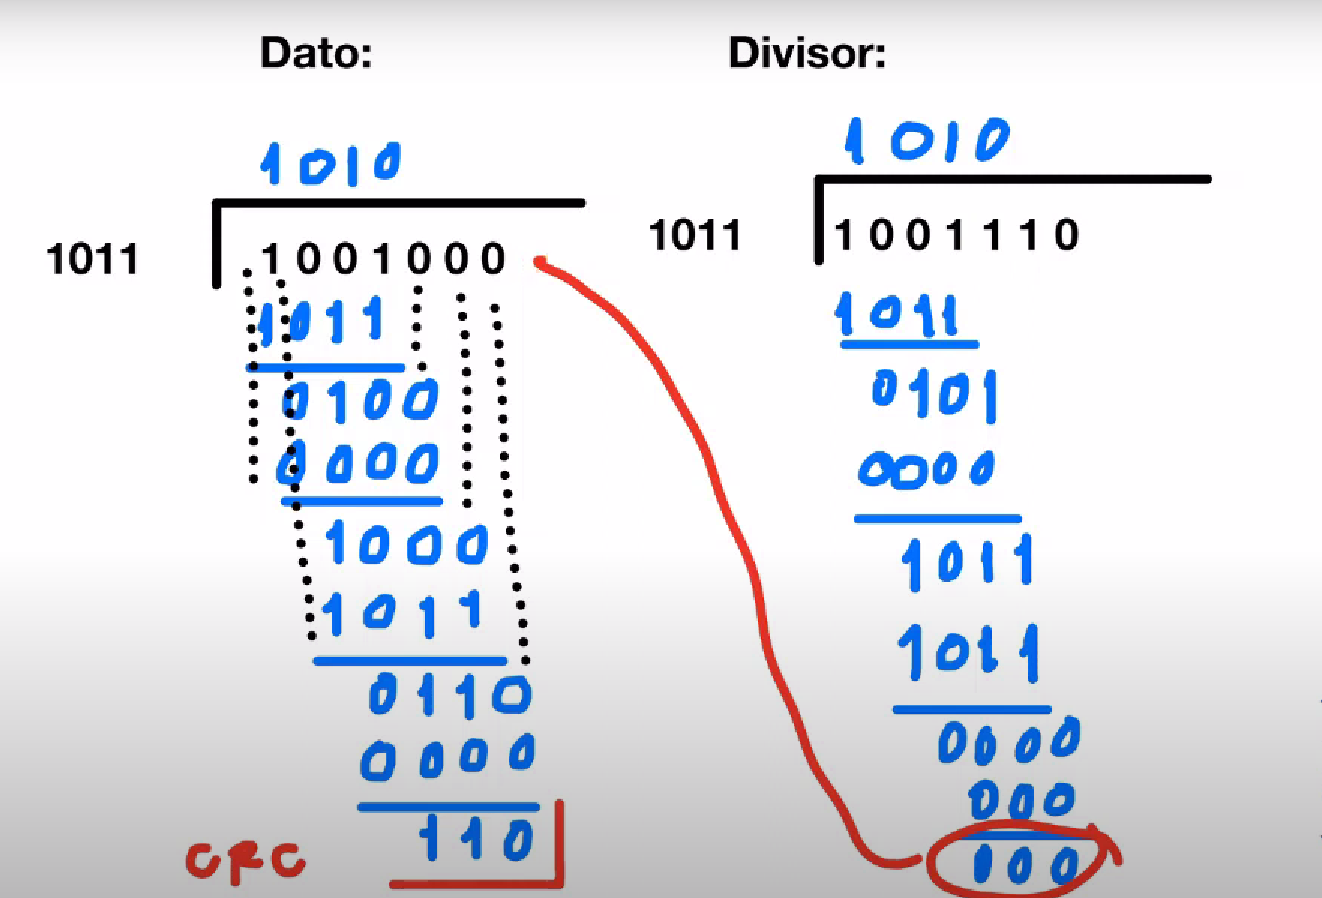 Dato:
1010
1011 1001000
1011
0100
0000
1000
1011
0110
0000
110
CRC
Divisor:
1010
1011 1001110
1011
0101
0000
1011
1011
0000
000
000